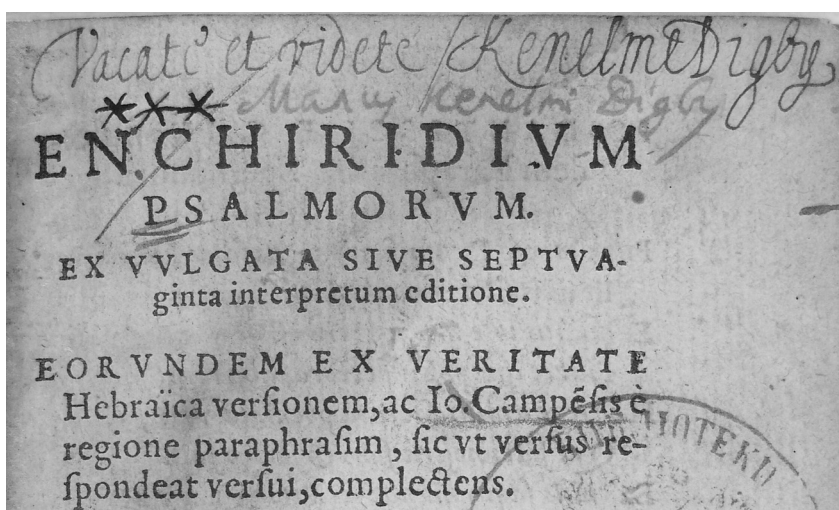 Vacate et videte Kenelme Digby,
Manus Kenelmi Digby
ENCHIRIDIVM
PSALMORVM.
EX VVLGATA SIVE SEPTVA-
ginta interpretum editione.
EORVNDEM EX VERITATE
Hebraïca verſionem, ac Io. Campẽſis è
regione paraphraſim, ſic vt verſus re-
ſpondeat verſui, complectens.